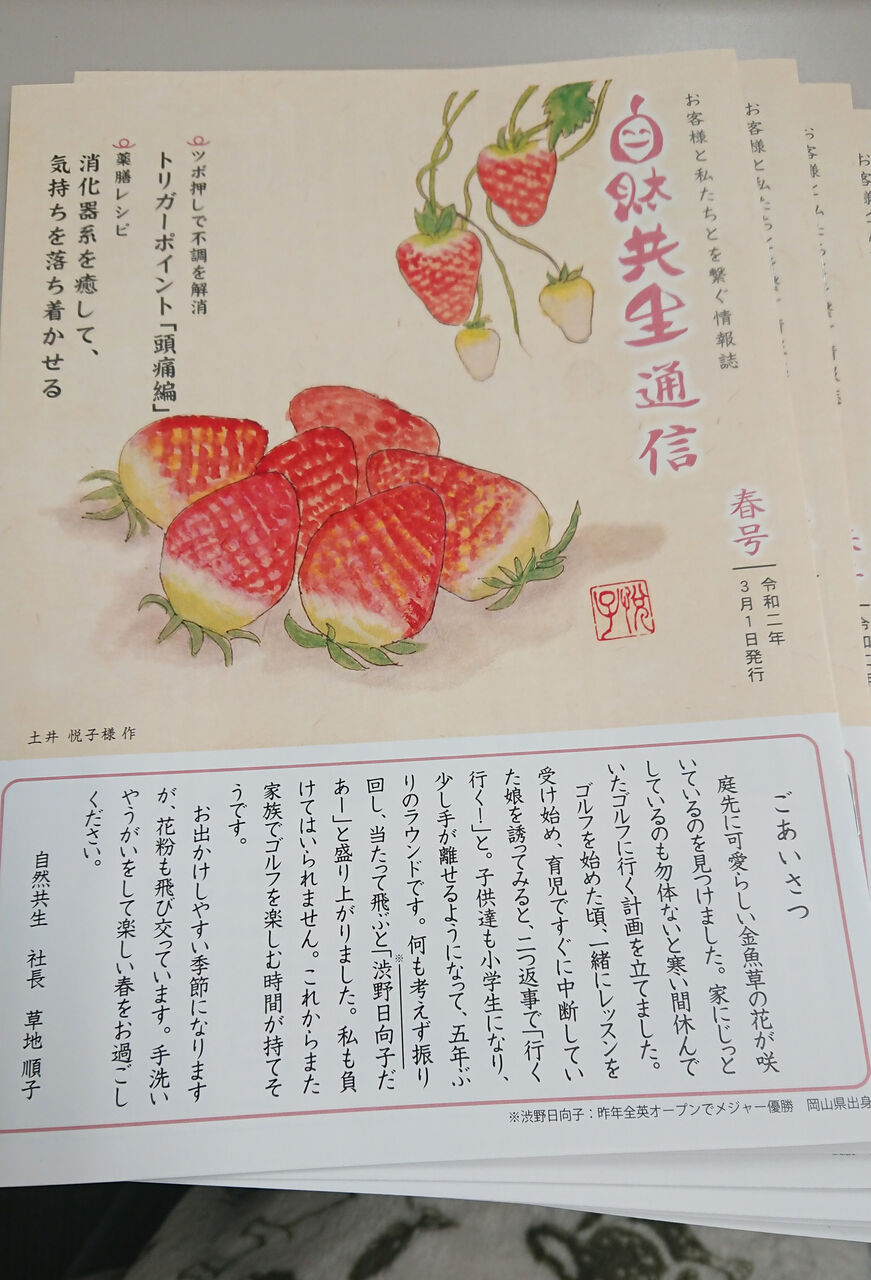 お客様と私たちとを繋ぐ情報誌
自然共生通信
春号
令和二年
3月1日発行
ツボ押しで不調を解消
トリガーポイント「頭痛編」
薬膳レシピ
消化器系を癒して、
気持ちを落ち着かせる
悦子
土井 悦子様 作
ごあいさつ
庭先に可愛らしい金魚草の花が咲
いているのを見つけました。家にじっと
しているのも勿体ないと寒い間休んで
いたゴルフに行く計画を立てました。
ゴルフを始めた頃、一緒にレッスンを
受け始め、育児ですぐに中断してい
た娘を誘ってみると、二つ返事で「行く
行く!」と。子供達も小学生になり、
少し手が離せるようになって、五年ぶ
りのラウンドです。何も考えず振り
回し、当たって飛ぶと「※渋野日向子だ
あー」と盛り上がりました。私も負
けてはいられません。これからまた
家族でゴルフを楽しむ時間が持てそ
うです。
お出かけしやすい季節になります
が、花粉も飛び交っています。手洗い
やうがいをして楽しい春をお過ごし
ください。
自然共生 社長 草地 順子
※渋野日向子:昨年全英オープンでメジャー優勝 岡山県出身